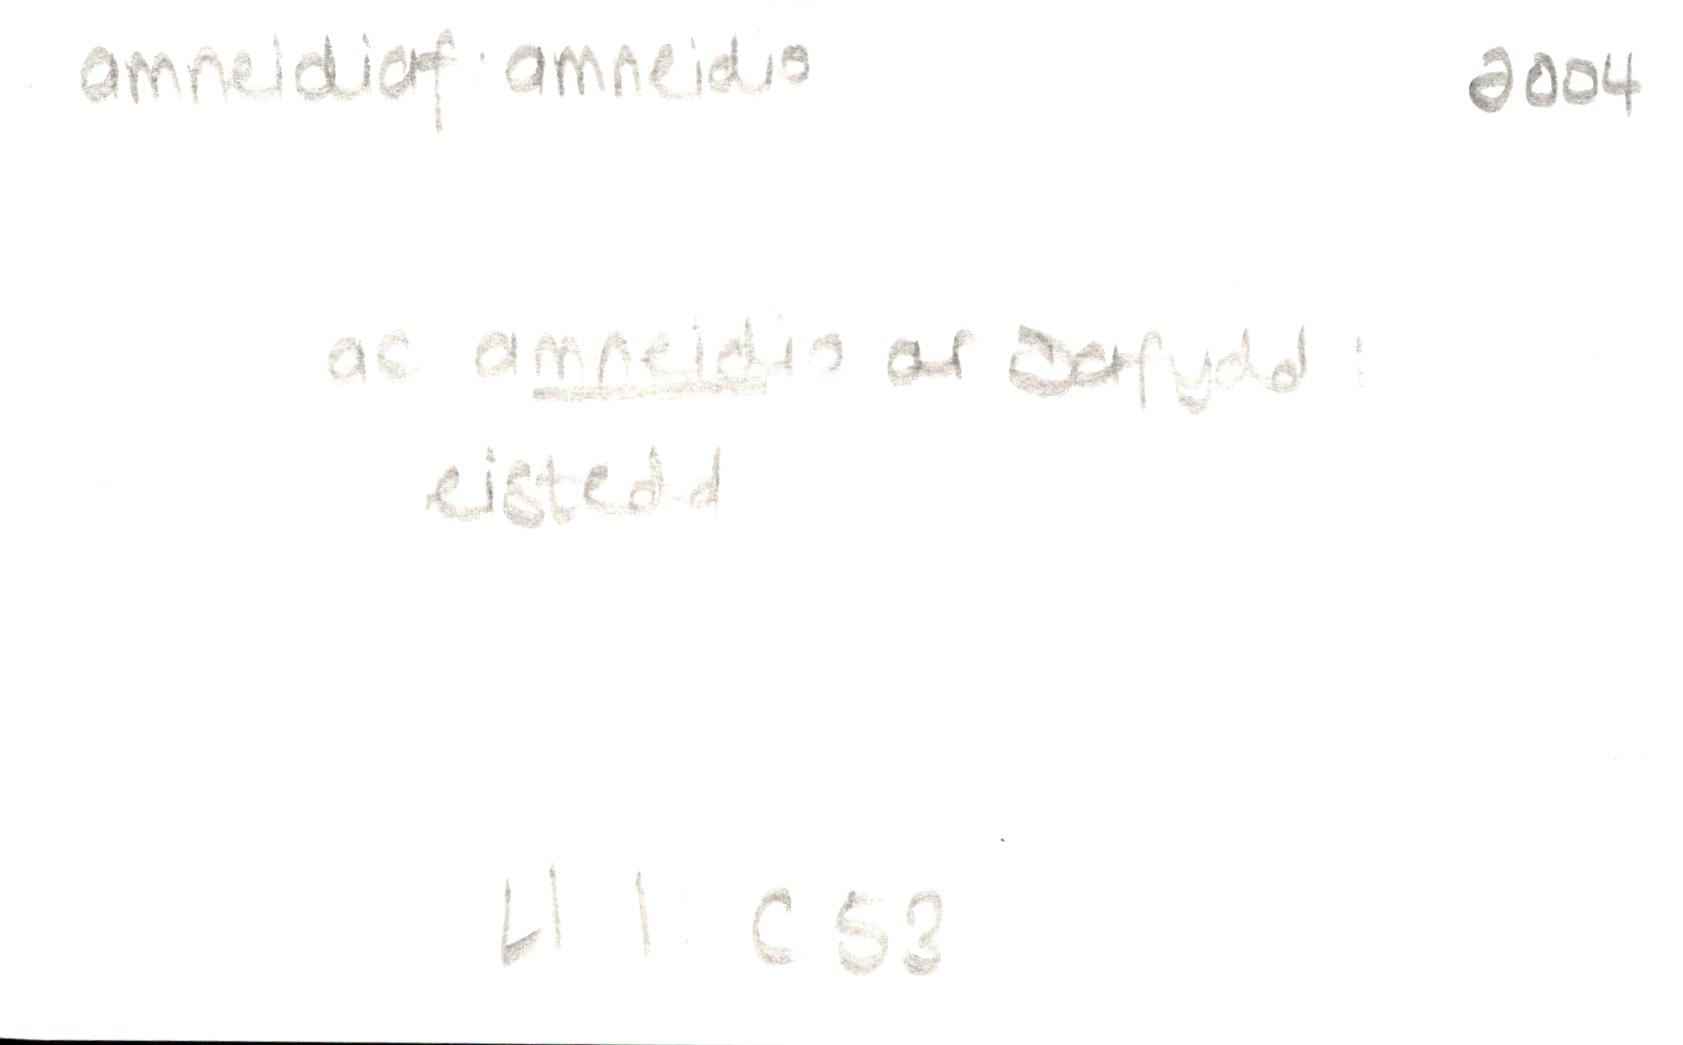 amneidiaf: amneidio 2004
ac amneidio ar Dafydd i
eistedd
Ll 1: C 53